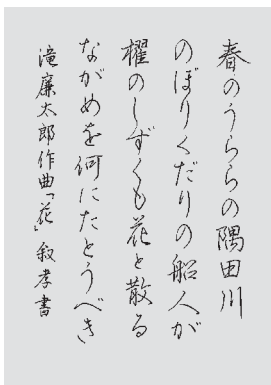 春のうららの隅田川
のぼりくだりの船人が
櫂のしずくも花と散る
ながめを何にたとうべき
滝廉太郎作曲「花」叙孝書